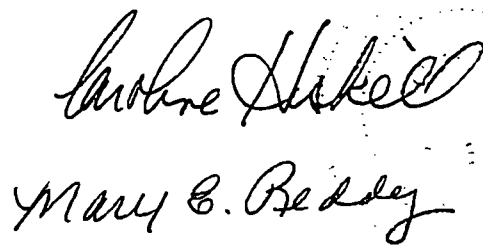 Caroline Haskell
Mary E. Beddy